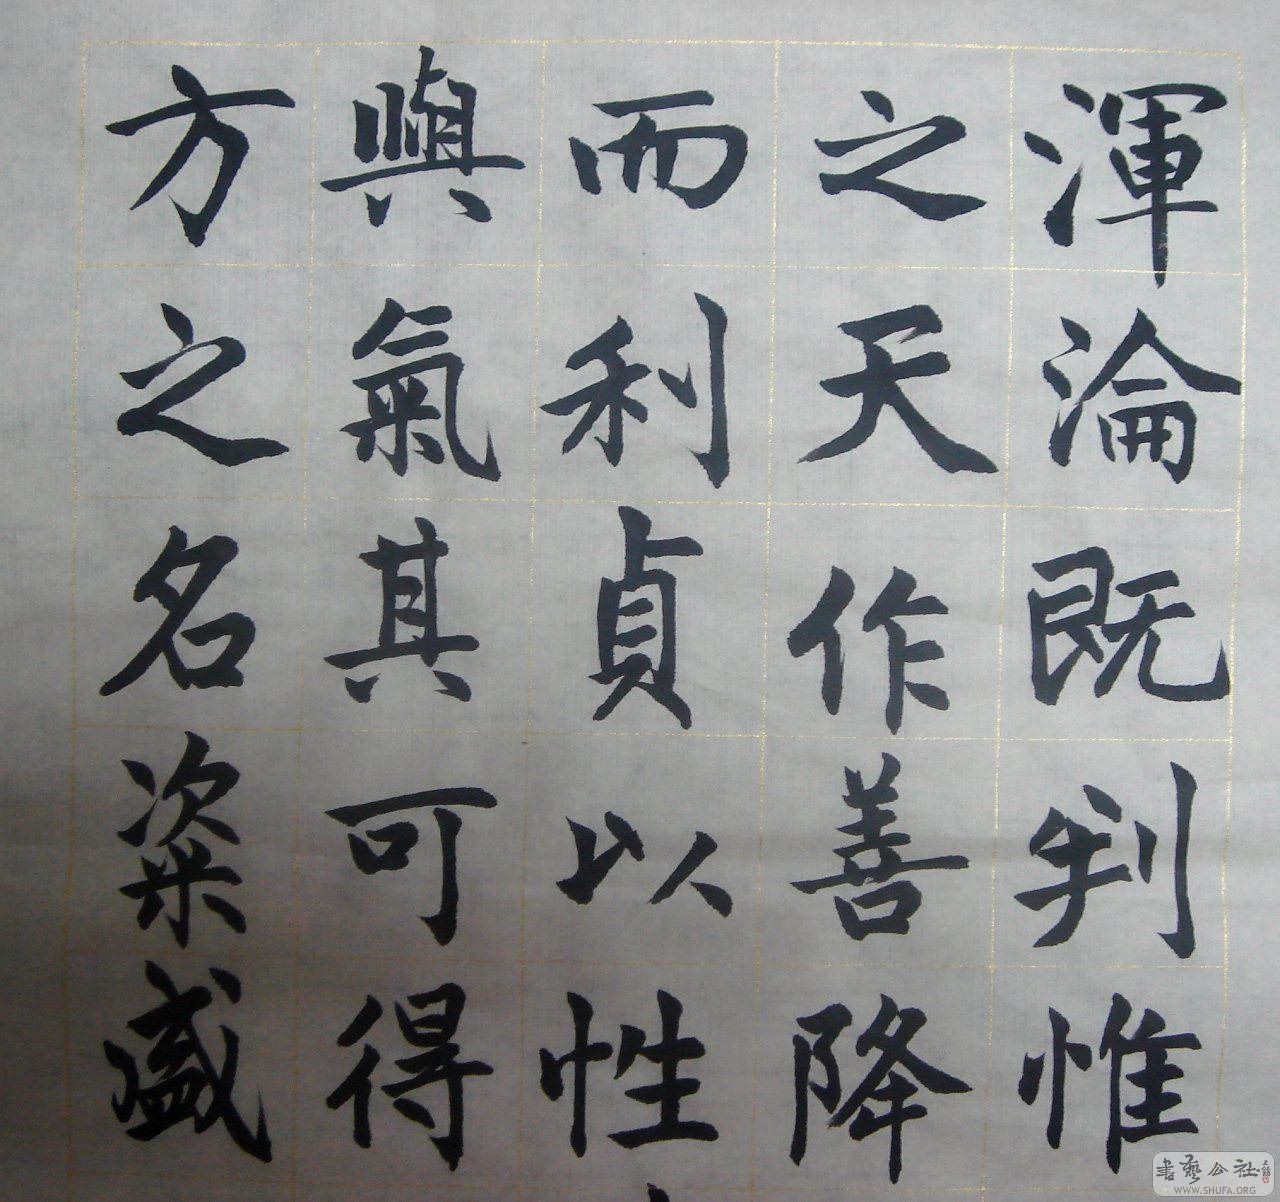 渾淪既判惟
之天作善降
而利貞以性
與氣其可得
方之名粢盛
書藝公社
WWW.SHUFA.ORG